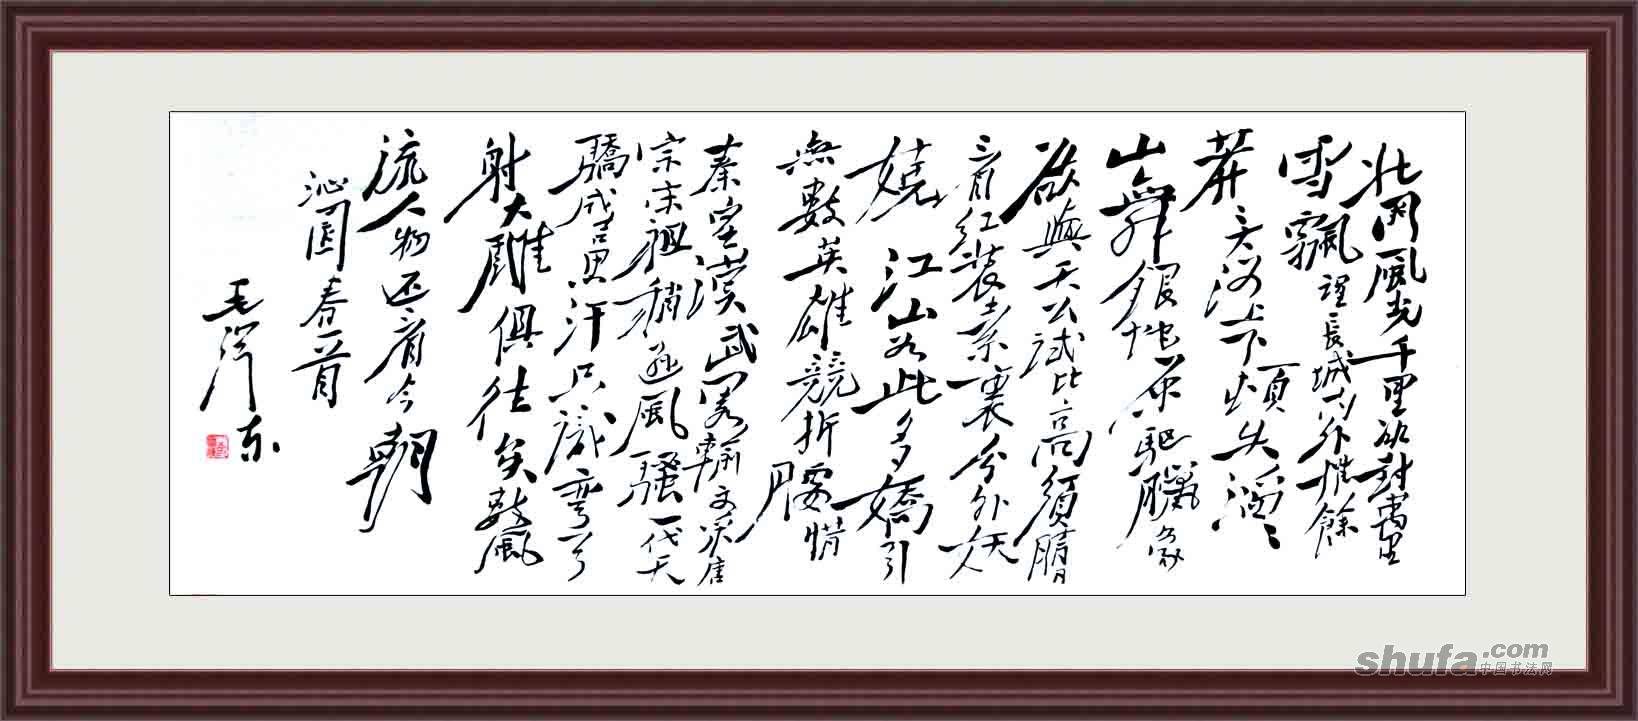 北國風光千里冰封萬里
雪飄望長城內外惟餘
莽々大河上下頓失滔々
山舞銀蛇原驅臘象
欲與天公試比高須晴日
看紅裝素裹分外妖
嬈江山如此多嬌引
無數英雄競折腰惜
秦皇漢武略輸文采唐
宗宋祖稍遜風騷一代天
驕成吉思汗只識彎弓
射大雕俱往矣數風
流人物还看今朝
沁園春一首
毛澤东
shufa.com
中国书法网